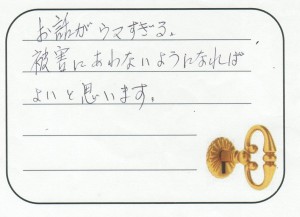 お話がウマすぎる。
被害にあわないようになれば
よいと思います。